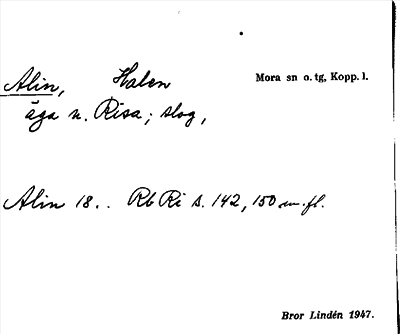 Alin, Halen Mora sn o. tg, Kopp. l.
äga n. Risa; slog,
Alin 18.. Rb Ri s. 142, 150 m. fl.
Bror Lindén 1947.